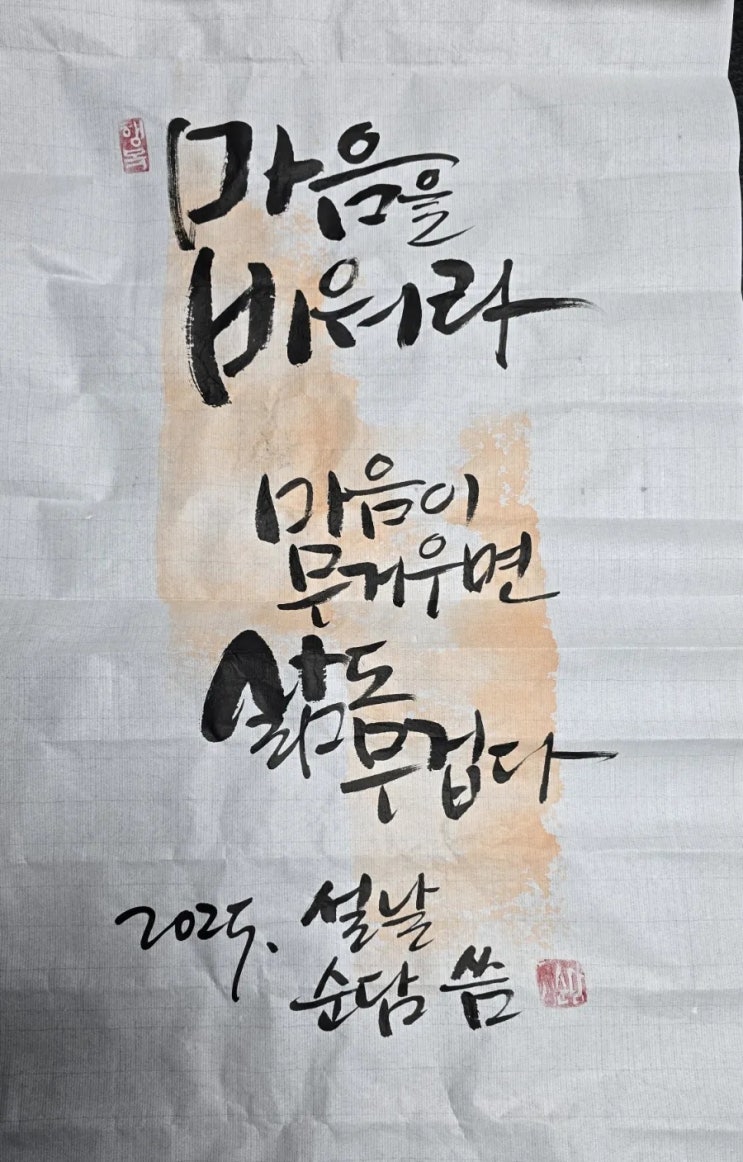 행복
마음을
비워라
마음이
무거우면
삶도
무겁다
2025. 설날
순담 씀